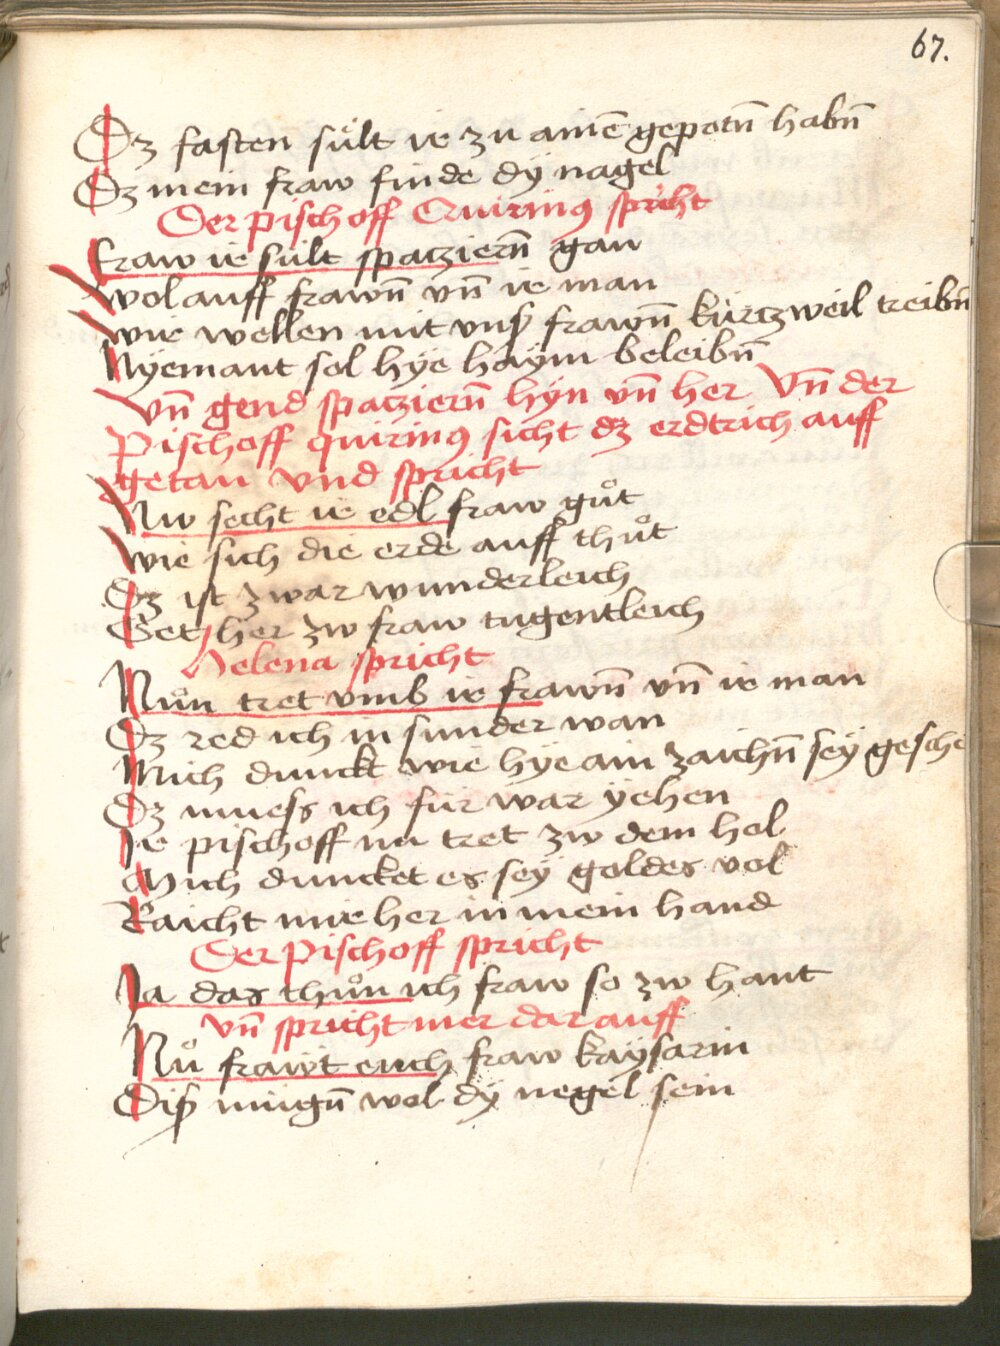 67.
Dz fasten sült ir zu ainē gepotn̄ habn̄
Dz mein fraw finde dÿ nagel
Der pischoff Quirinꝰ spricht
Fraw ir sult spatziern̄ gan
Wol auff frawn̄ vn̄ ir man
Wir wellen mit vnß frawn̄ kürtzweil treibn̄
Nÿemant sol hÿe haÿm beleibn̄
Vn̄ gend spatziern̄ hÿn vn̄ her Vn̄ der
Pischoff quirinꝰ sicht dz erdtrich auff
getan vnd spricht
Nw secht ir edl fraw guͦt
Wie sich die erde auff thuͦt
Dz ist zwar wunderleich
Get her zw fraw tugentleich
Helena spricht
Nuͦn tret vmb ir frawn̄ vn̄ ir man
Dz red ich in sunder wan
Mich dunckt wie hÿe ain zaichn̄ seÿ gesche
Dz muess ich für war ÿehen
Ir pischoff nu tret zw dem hol
Mich duncket es seÿ goldes vol
Raicht mir her in mein hand
Der Pischoff spricht
Ja das thuͦn ich fraw so zw hant
Vn̄ spricht mer dar auff
Nuͦ frawt euch fraw kaÿsarin
Diß mügn̄ wol dÿ negel sein